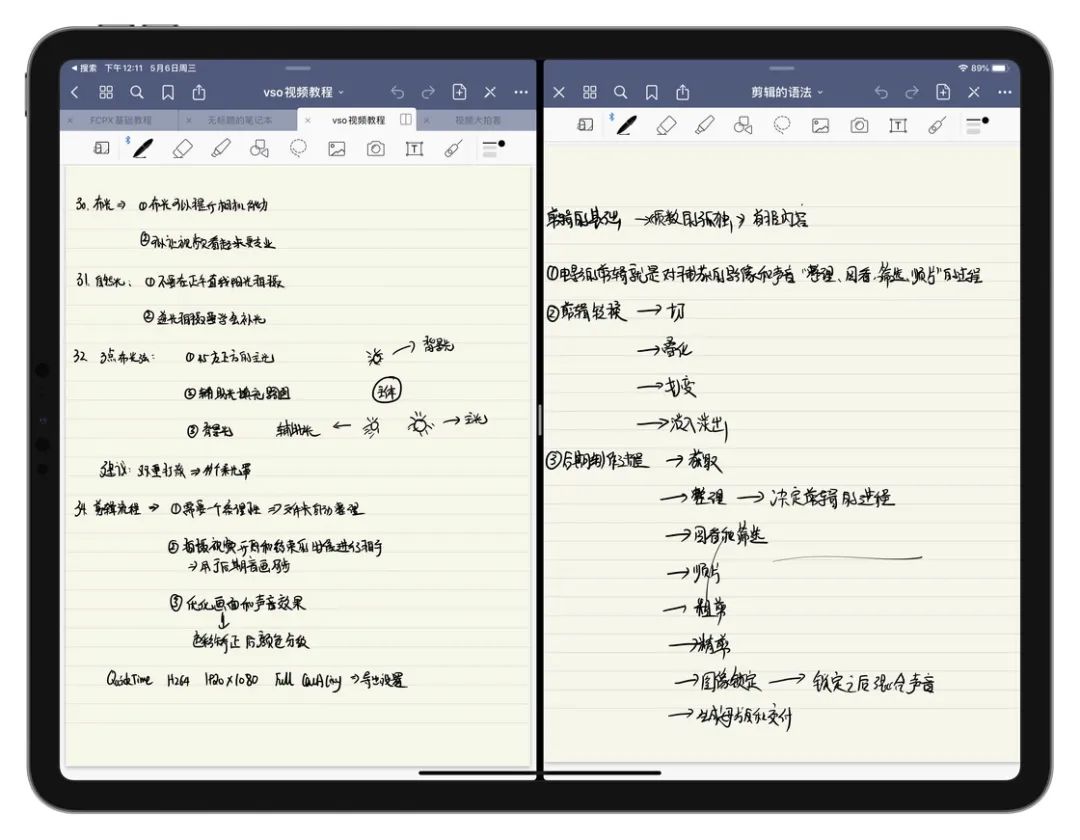 搜索 下午12:11 5月6日周三
89%
vso视频教程
FCPX基础教程 无标题的笔记本 vso视频教程 视频大拍客
30. 布光⇒ ①布光可以提升相机能力
②可以让视频看起来更专业
31. 自然光: ①不要在正午直线阳光拍摄
②逆光拍摄要学会补光
32 3点布光法: ①45°左右的主光
→背景光
②辅助光填充阴影
主体
③背景光 辅助光 ← →主光
建议: 环境灯较 ⇒ 柔光罩
34. 剪辑流程 → ①需要一个条理性 ⇒ 文件夹自动整理
②拍摄视频开始和结束的时候进行拍手
⇒用于后期音画同步
③优化画面和声音效果
↓
色彩矫正后颜色分级
QuickTime H264 1920×1080 Full Quality ⇒导出设置
剪辑的语法
剪辑的基础 → 有限内容
①电影的剪辑就是对于拍摄的影像和声音“整理、回看、筛选、顺片”的过程
②剪辑转换 → 切
→叠化
→划变
→淡入淡出
③后期制作过程 → 获取
→整理 → 决定剪辑的进程
→回看和筛选
→顺片
→粗剪
→精剪
→图像锁定 → 锁定之后混合声音
→生成母版和交付